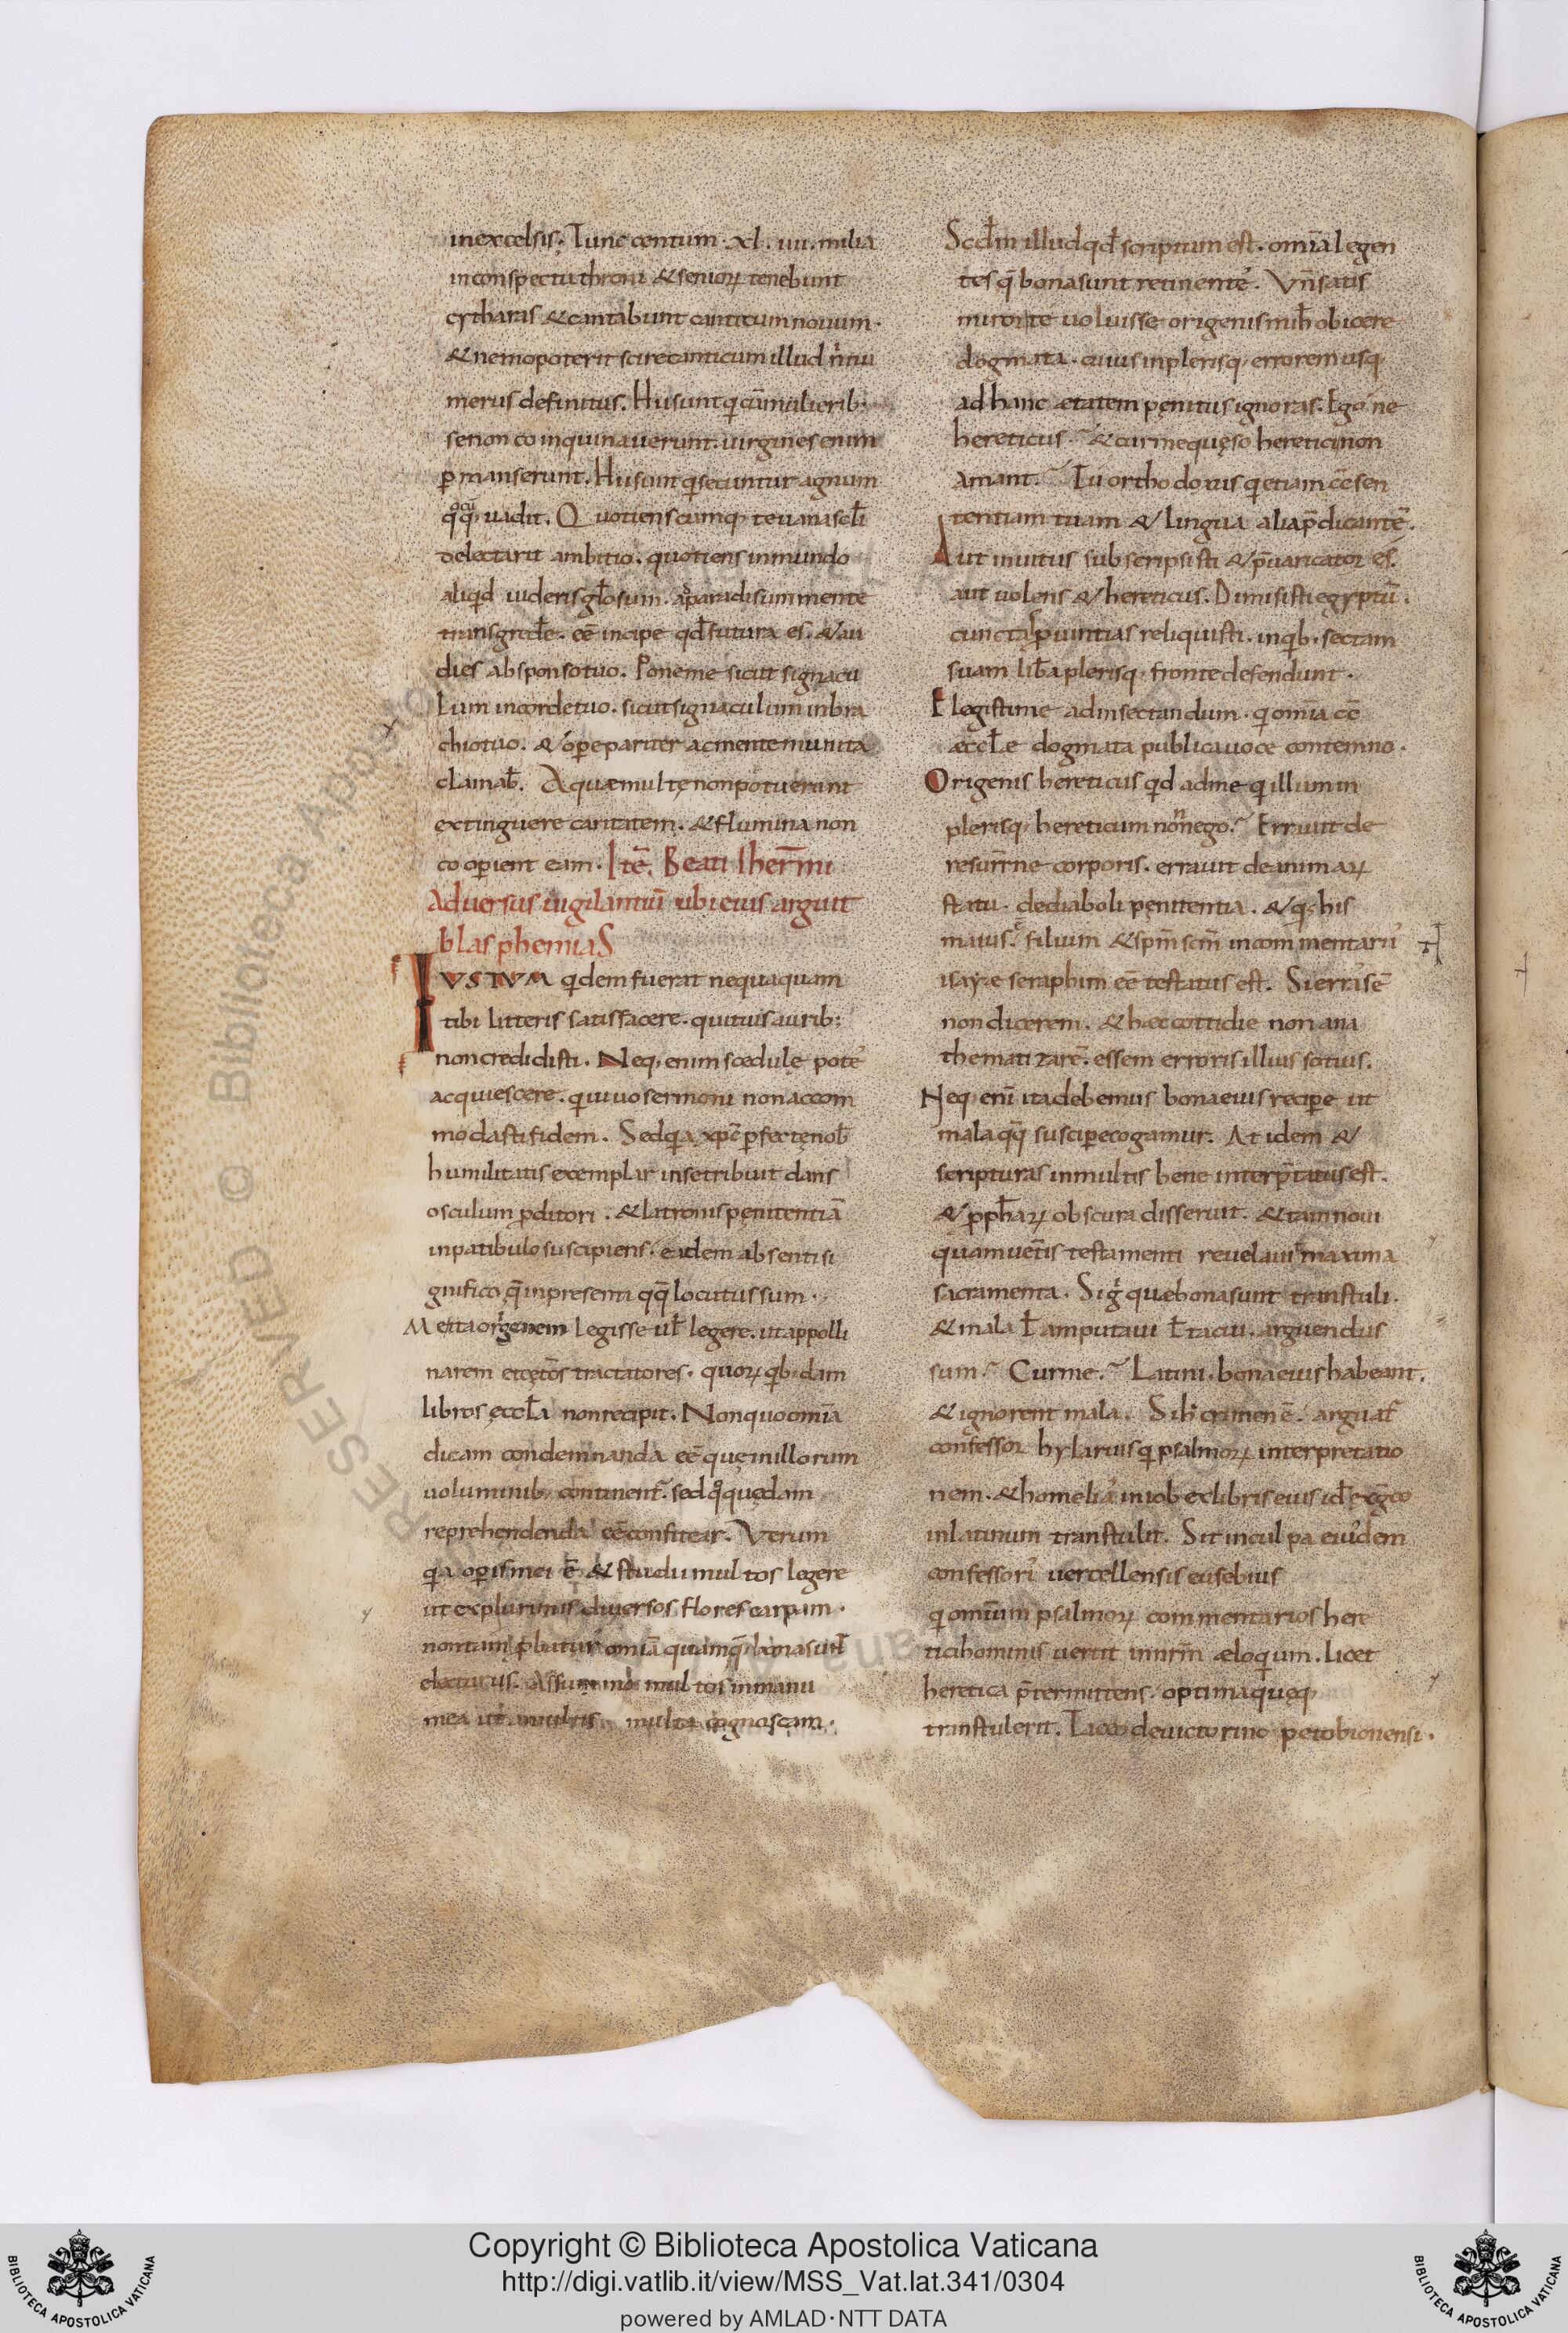 in excelsis. Tunc centum. xl. iiii. milia
in conspectu throni & senioꝝ tenebunt
cytharas & cantabunt canticum nouum.
& nemo poterit scire canticum illud n̄ nu
merus definitus. Hii sunt qi cū mulierib;
se non coinquinauerunt. uirgines enim
ꝑmanserunt. Hii sunt qi secuntur agnum
qͦcūq; uadit. Quotienscumq; te uana scl̄i
delectarit ambitio. quotiens in mundo
aliqid uideris gl̄osum. ad paradisum mente
transgred̄e. eē incipe qd̄ futura es. & au
dies ab sponso tuo. Pone me sicut signacu
lum in corde tuo. sicut signaculum in bra
chio tuo. & oꝑe pariter ac mente munita
clamab̄. Aquae multę non potuerunt
extinguere caritatem. & flumina non
cooꝑient eam. Itē. Beati Iheron̄imi
Aduersus uigilantiū ubi eius arguit
blasphemiaS
IUSTUM qidem fuerat nequaquam
tibi litteris satisfacere. qui tuis aurib;
non credidisti. Neq; enim scedulę pote᷒
acquiescere. qi uiuo sermoni non accom
modasti fidem. Sed qia xp̄c ꝑfectę nob̄
humilitatis exemplar in se tribuit dans
osculum ꝓditori. & latronis pęnitentiā
in patibulo suscipiens. eadem absenti si
gnifico. q̄ in presenti qq̄ locutus sum.
Me ita origenem legisse ul̄ legere. ut appolli
narem et cęteros tractatores. quoꝝ qib;dam
libros ęccl̄a non recipit. Non quo omīa
dicam condemnanda eē quę in illorum
uoluminib; continent᷑. sed qͦ quędam
reprehendenda eē confitear. Verum
qia oꝑis mei ē & studii multos legere
ut ex plurimis diuersos flores carpam.
non tam ꝓbatur omīa quamq; bona sunt
electurus. Assumno multos in manu
mea ut a multis multa cognoscam.
Scd̄m illud qd̄ scriptum est. omīa legen
tes q̄ bona sunt retinente᷒. Vn̄ satis
miror te uoluisse origenis mih̄ obicere
dogmata. cuius in plerisq; errorem usq;
ad hanc ętatem pęnitus ignoras. Ego ne
hereticus. & cur me quęso heretici non
amant. Tu orthodoxus qi etiam c̄ sen
tentiam tuam & lingua alia p̄dicante᷒.
Aut inuitus subscripsisti & p̄uaricator es.
aut uolens & hereticus. Dimisisti egyptū.
cunctas ꝓuintias reliquisti. in qib; sectam
suam lib̄a plerisq; fronte defendunt.
Elegisti me ad insectandum. qi omīa c̄
ęccl̄e dogmata publica uoce contemno.
Origenis hereticus qid ad me qi illum in
plerisq; hereticum non nego. Errauit de
resurr̄ne corporis. errauit de animaꝝ
statu. de diaboli pęnitentia. & q; his
maius. ē filium & sp̄m sc̄m in commentarii᷒
isayęe seraphim eē testatus est. Si errasse᷒
non dicerem. & hęc cottidie non ana
thematizare᷒. essem erroris illius sotius.
Neq; enī ita debemus bona eius reciꝑe ut
mala qq; susciꝑe cogamur. At idem &
scripturas in multis bene interp̄tatus est.
& ꝓph̄aꝝ obscura disseruit. & tam noui
quam uet̄is testamenti reuelauit maxima
sacramenta. Si gͥ quae bona sunt transtuli.
& mala l̄ amputaui l̄ tacui. arguendus
sum. Cur me. Latini. bona eius habeant.
& ignorent mala. Si h̄ crimen ē. arguat᷑
confessor hylarius qi psalmoꝝ interpretatio
nem. & homelia᷒ in iob ex libris eius id̄ ex gręco
in latinum transtulit. Sit in culpa eiusdem
confessoris uercellensis eusebius
qi omīum psalmoꝝ commentarios here
tici hominis uertit in nr̄m ęloqium. licet
heretica p̄termittens. optima quęq;
transtulerit. Taceo de uictorino petobionensi.
Copyright © Biblioteca Apostolica Vaticana
http://digi.vatlib.it/view/MSS_Vat.lat.341/0304
powered by AMLAD·NTT DATA